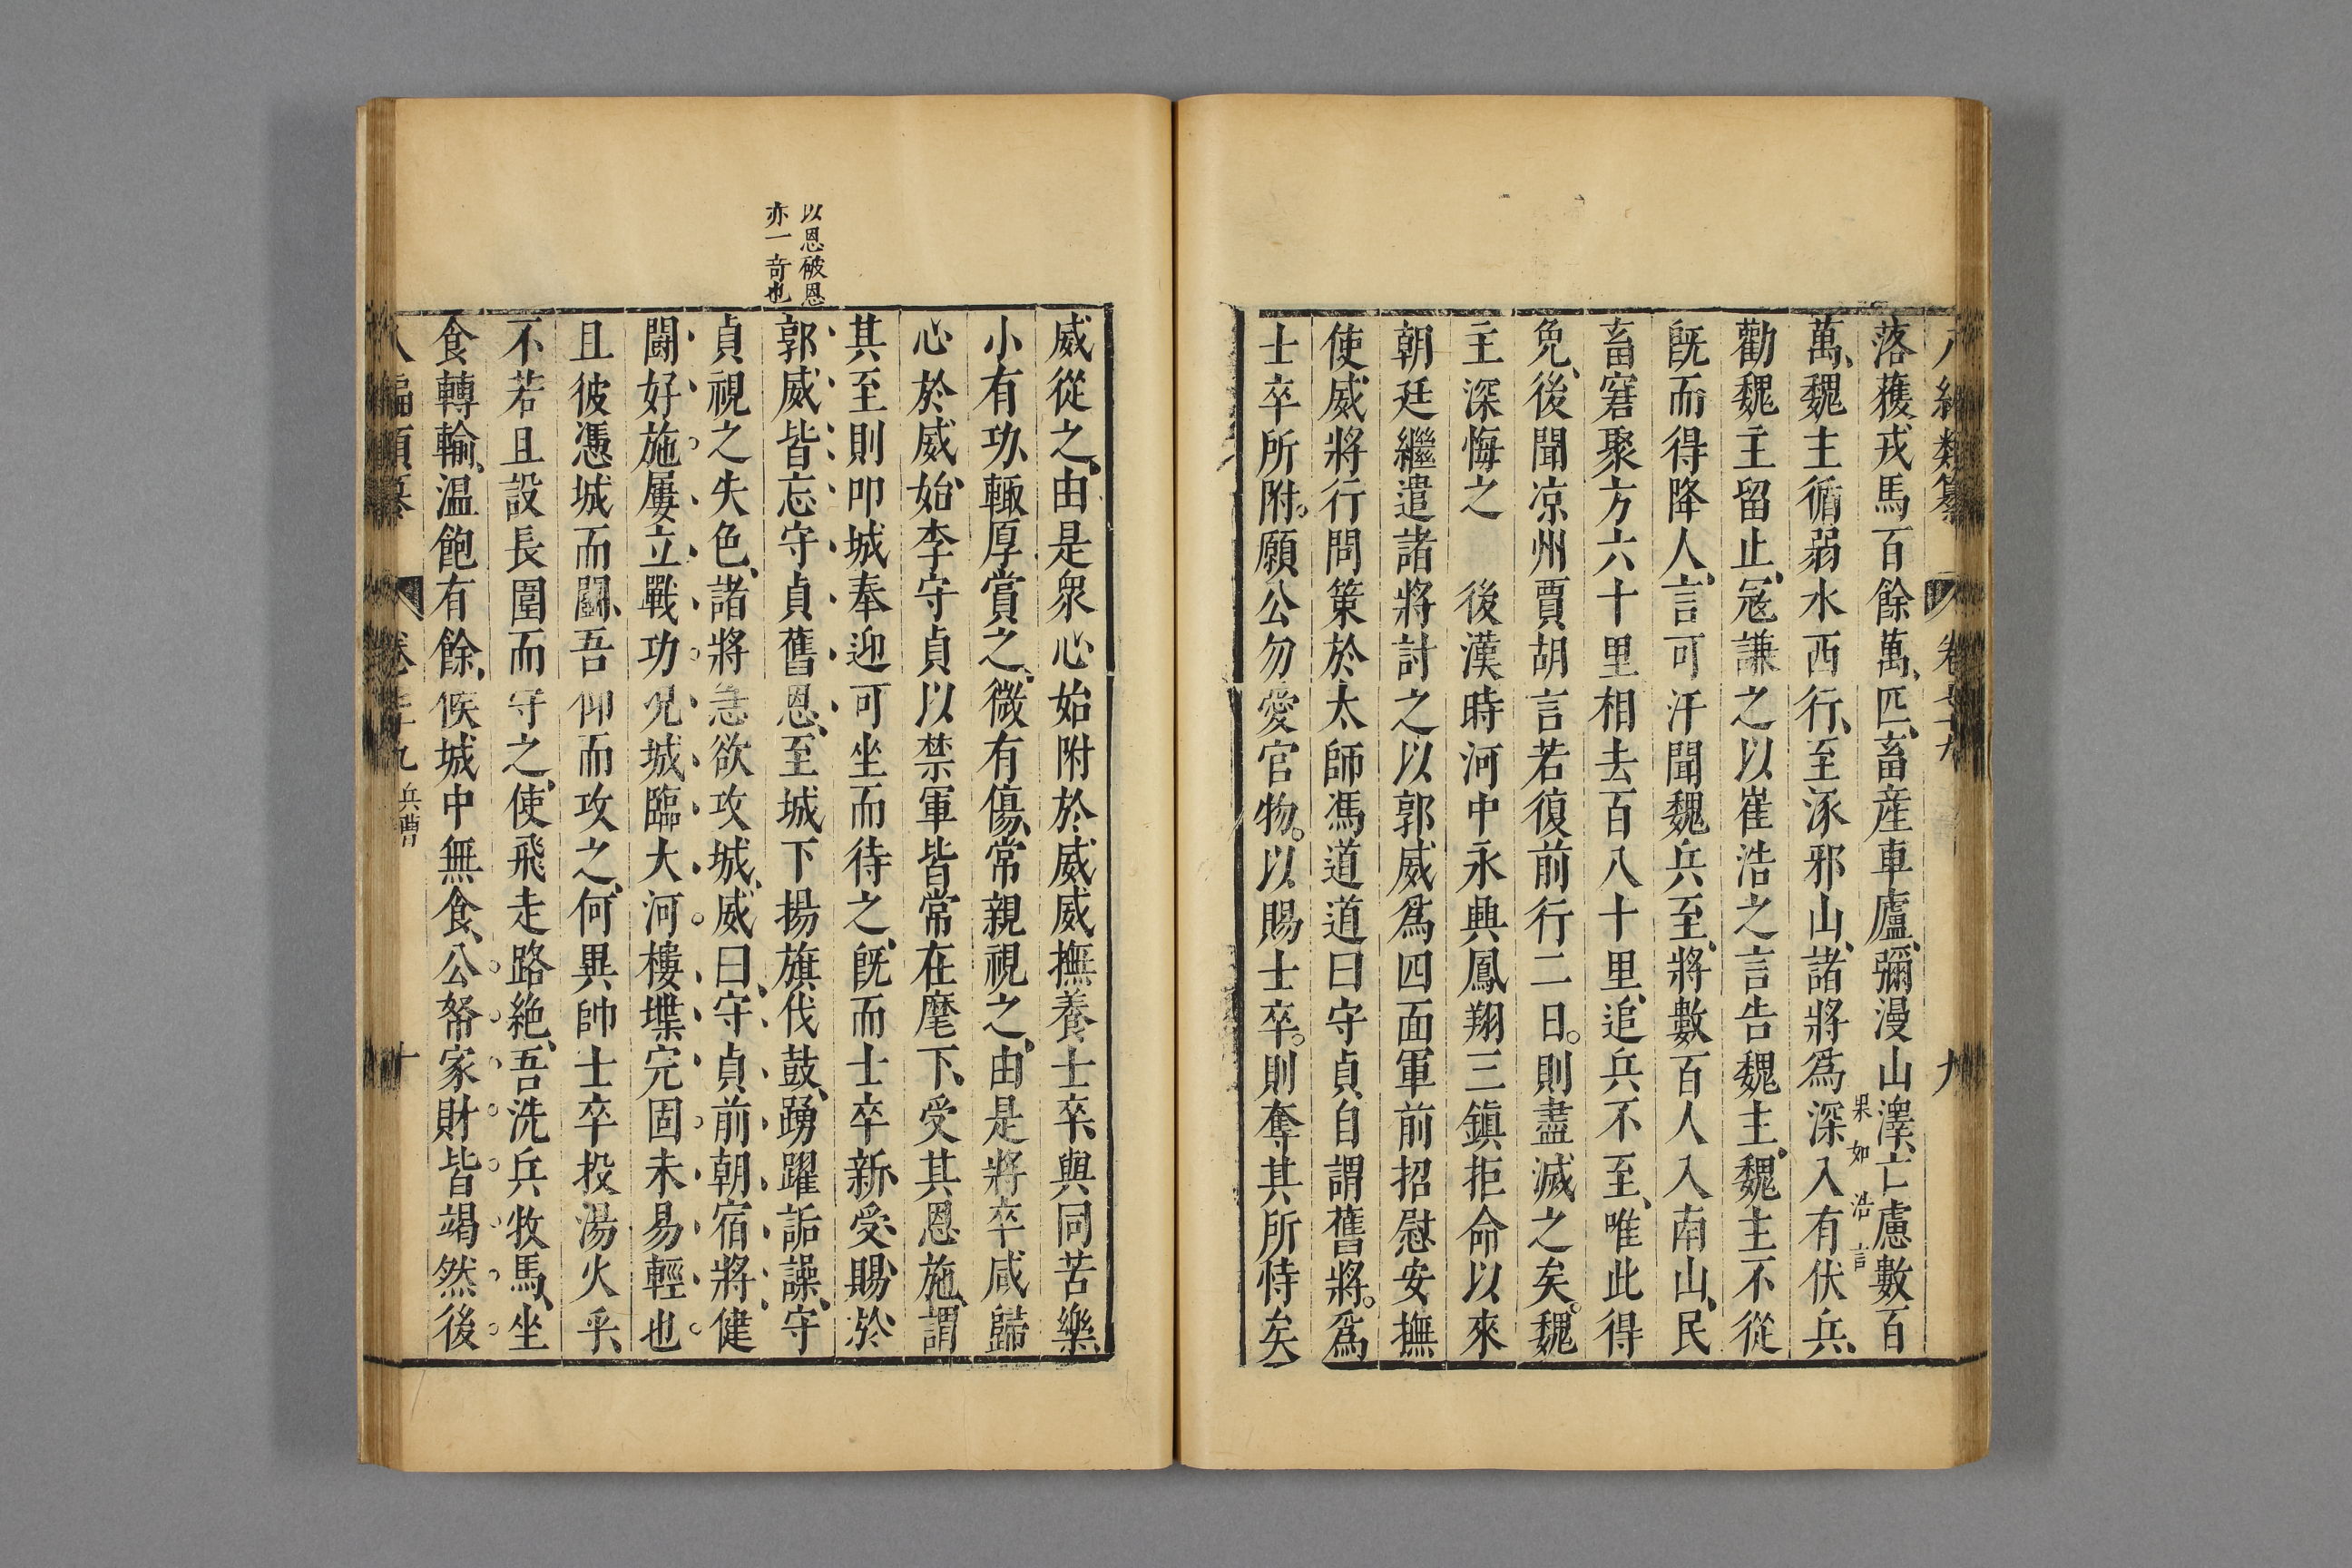 八編類纂 卷 九
落獲戎馬百餘萬匹畜産車廬彌漫山澤亡慮數百
萬魏主循弱水西行至涿邪山諸將爲深入有伏兵
果如浩言
勸魏主留止寇謙之以崔浩之言告魏主魏主不從
旣而得降人言可汗聞魏兵至將數百人入南山民
畜窘聚方六十里相去百八十里追兵不至唯此得
免後聞凉州賈胡言若復前行二日則盡滅之矣魏
主深悔之 後漢時河中永興鳳翔三鎮拒命以來
朝廷繼遣諸將討之以郭威爲四面軍前招慰安撫
使威將行問策於太師馮道道曰守貞自謂舊將爲
士卒所附願公勿愛官物以賜士卒則奪其所恃矣
威從之由是衆心始附於威威撫養士卒與同苦樂
小有功輒厚賞之微有傷常親視之由是將卒咸歸
心於威始李守貞以禁軍皆常在麾下受其恩施謂
其至則叩城奉迎可坐而待之旣而士卒新受賜於
以恩破恩
亦一奇也
郭威皆忘守貞舊恩至城下揚旗伐鼓踴躍詬譟守
貞視之失色諸將急欲攻城威曰守貞前朝宿將健
鬪好施屢立戰功况城臨大河樓堞完固未易輕也
且彼憑城而鬪吾仰而攻之何異帥士卒投湯火乎
不若且設長圍而守之使飛走路絶吾洗兵牧馬坐
食轉輸温飽有餘候城中無食公帑家財皆竭然後
八編類纂 卷 九 兵曹 十